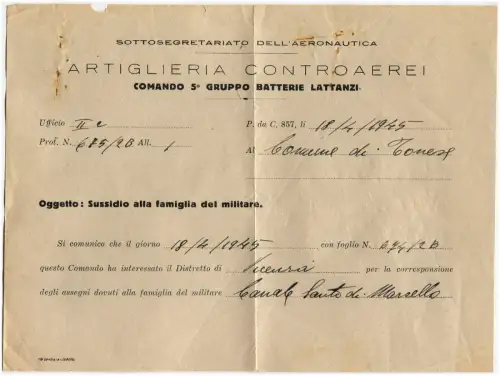 SOTTOSEGRETARIATO DELL'AERONAUTICA
ARTIGLIERIA CONTROAEREI
COMANDO 5º GRUPPO BATTERIE LATTANZI.
Ufficio II c P. da C. 857, li 18/4/1945
Prot. N. 675/2B All. 1 Al Comune di
Oggetto: Sussidio alla famiglia del militare.
Si comunica che il giorno 18/4/1945 con foglio N. 674/2B
questo Comando ha interessato il Distretto di Vicenza per la corresponsione
degli assegni dovuti alla famiglia del militare Canale Santo di Marsello